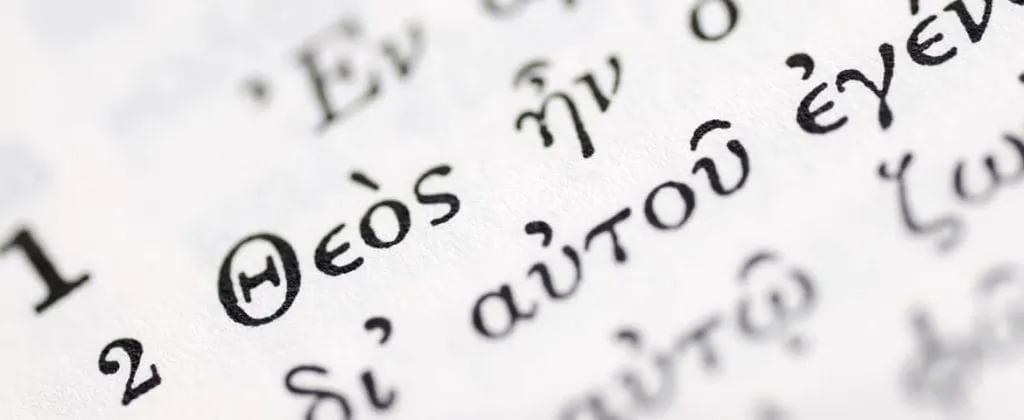 1 Ἐν
2 Θεὸς ἦν ὁ
δι’ αὐτοῦ ἐγέν
αὐτῷ ζω